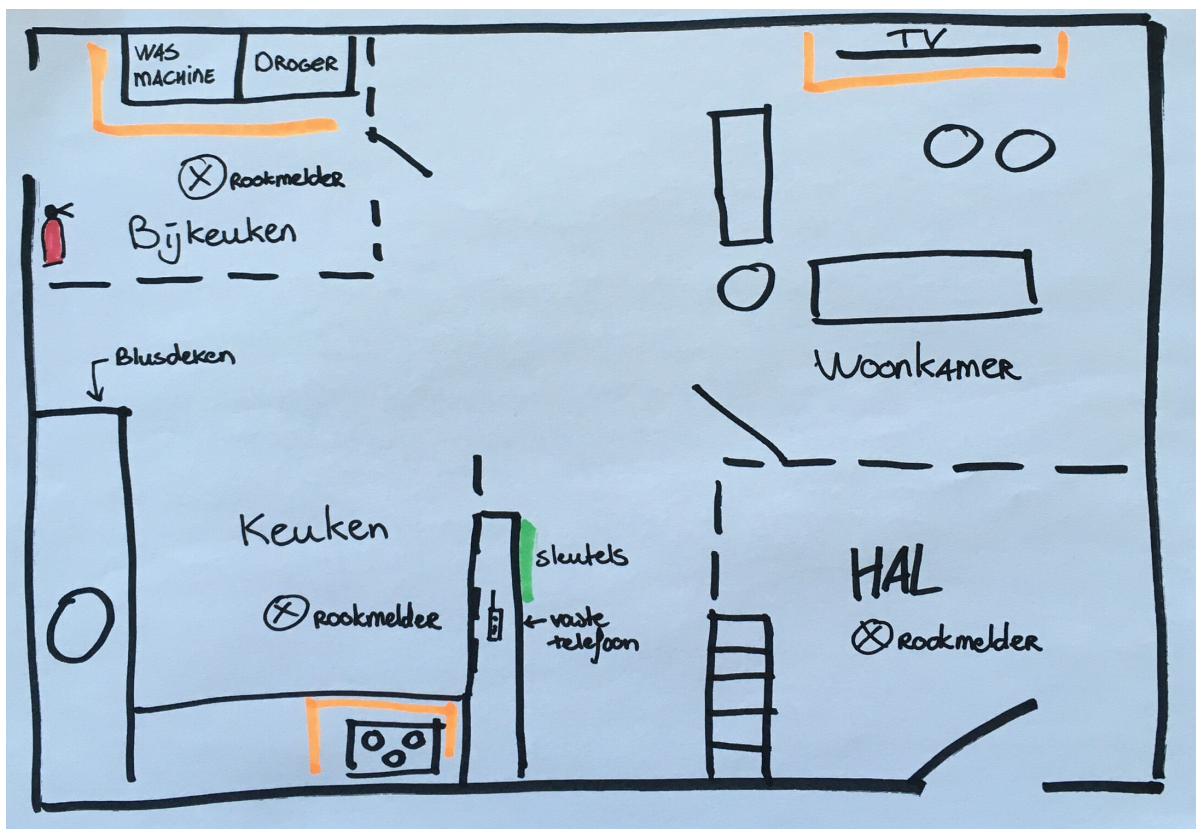 WAS
MACHINE
DROGER
TV
Rookmelder
Bijkeuken
Blusdeken
Woonkamer
Keuken
sleutels
HAL
Rookmelder
vaste
telefoon
Rookmelder